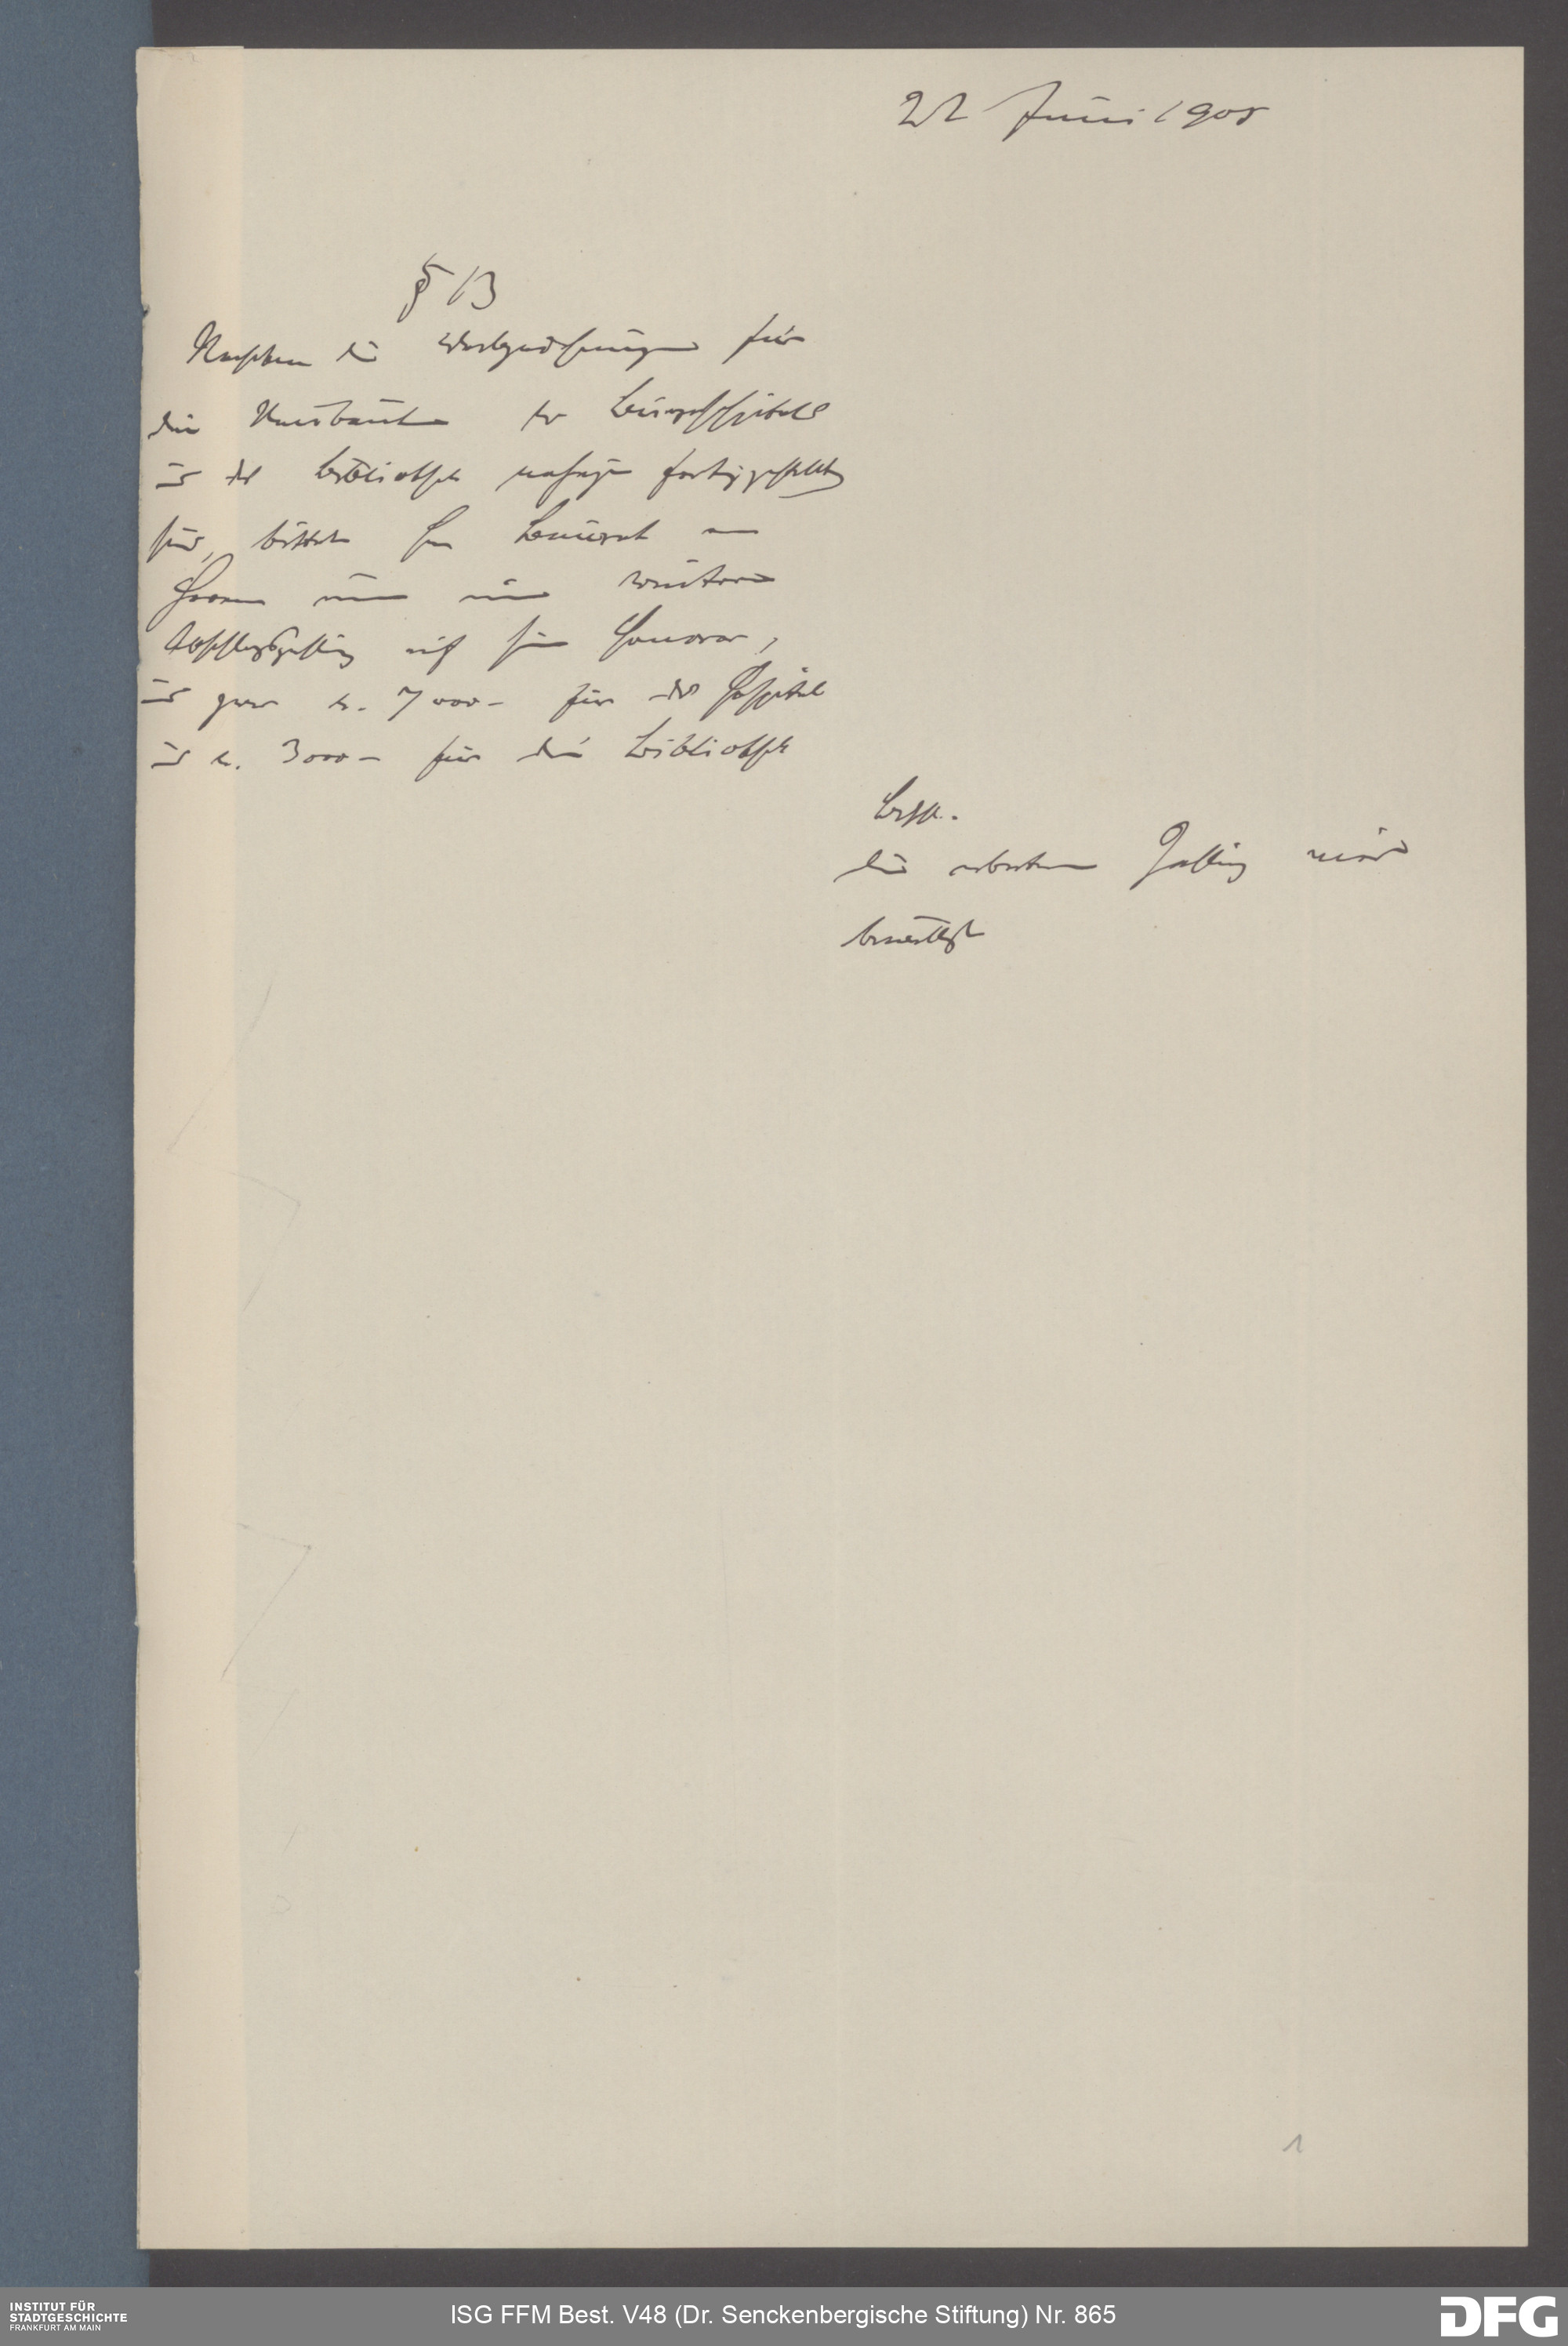 22 Juni 1905
§ 13
Nachdem die Werkzeichnungen für
die Neubauten des Bürgerhospitals
u der Bibliothek nahezu fertiggestellt
sind, bittet Hr Baurat von
Hoven um eine weitere
Abschlagszahlung auf sein Honorar,
und zwar M. 7000– für das Hospital
und M. 3000– für die Bibliothek
Beschl.
die erbetene Zahlung wird
bewilligt
1
INSTITUT FÜR
STADTGESCHICHTE
FRANKFURT AM MAIN
ISG FFM Best. V48 (Dr. Senckenbergische Stiftung) Nr. 865
DFG